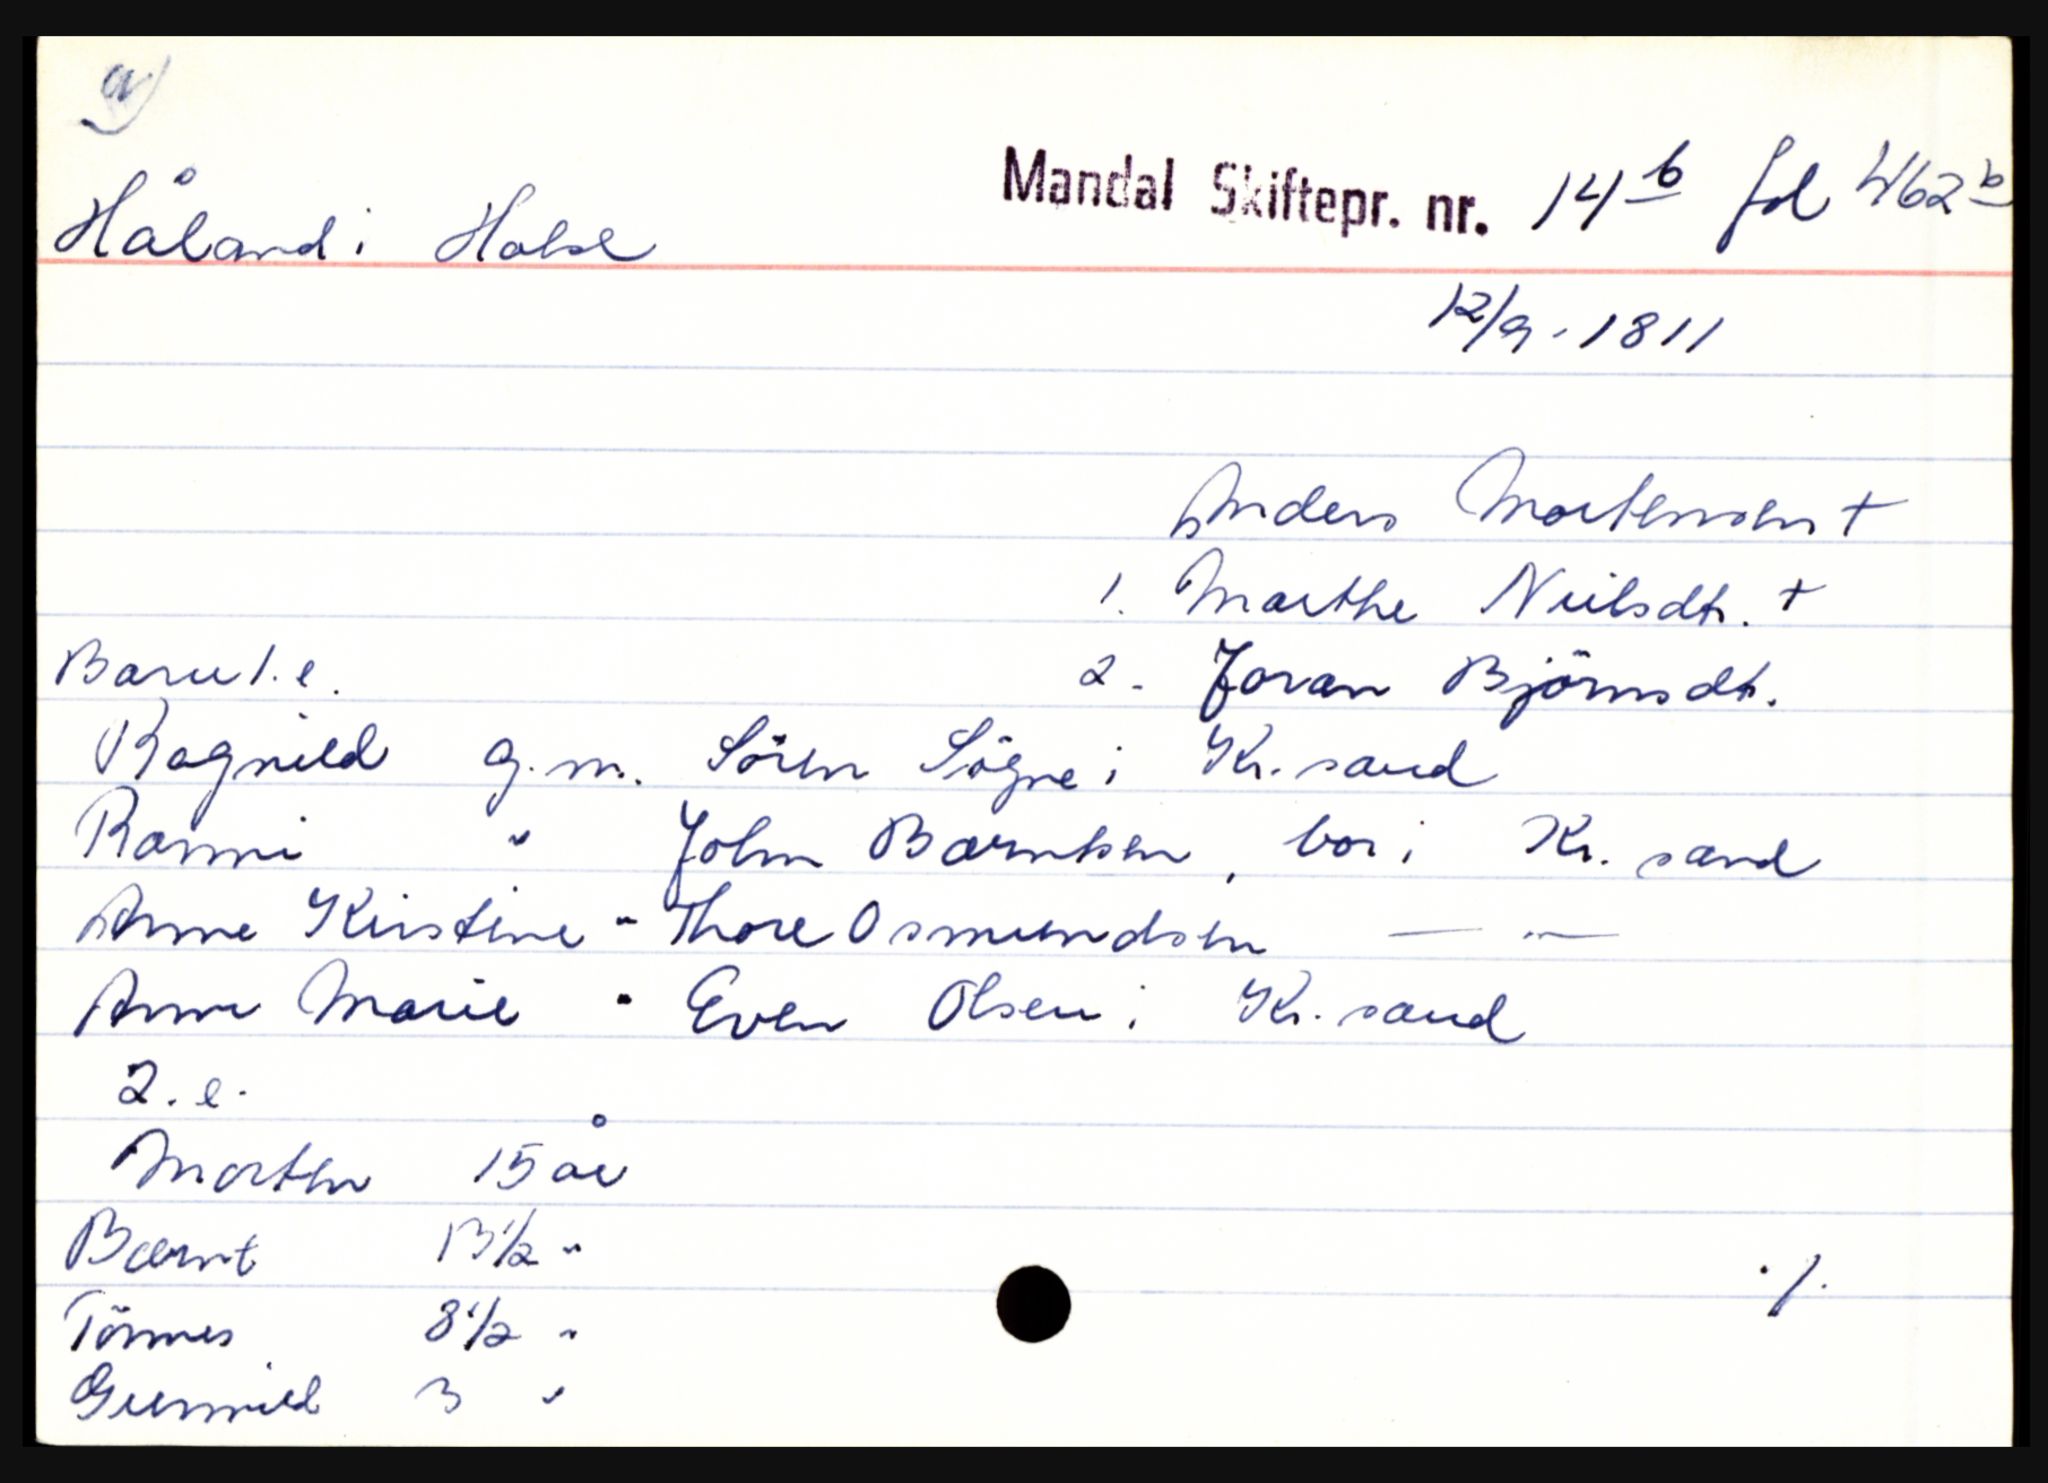 a)
Mandal Skiftepr. nr. 14 b fol 462 b
Håland i Halse
12/9 - 1811
Anders Mortensen +
1. Marthe Nielsdtr. +
Barn 1. e. 2. Joran Björnsdtr.
Ragnild g.m. Sören Søgne i Kr.sand
Ranni " John Barntsen, bor i Kr.sand
Anne Kirstine " Thore Osmundsen — " —
Anne Marie " Even Olsen i Kr.sand
2. e.
Morten 15 år
Bærnt 13 1/2 "
Tönnes 8 1/2 "
Gunnild 3 "
./.